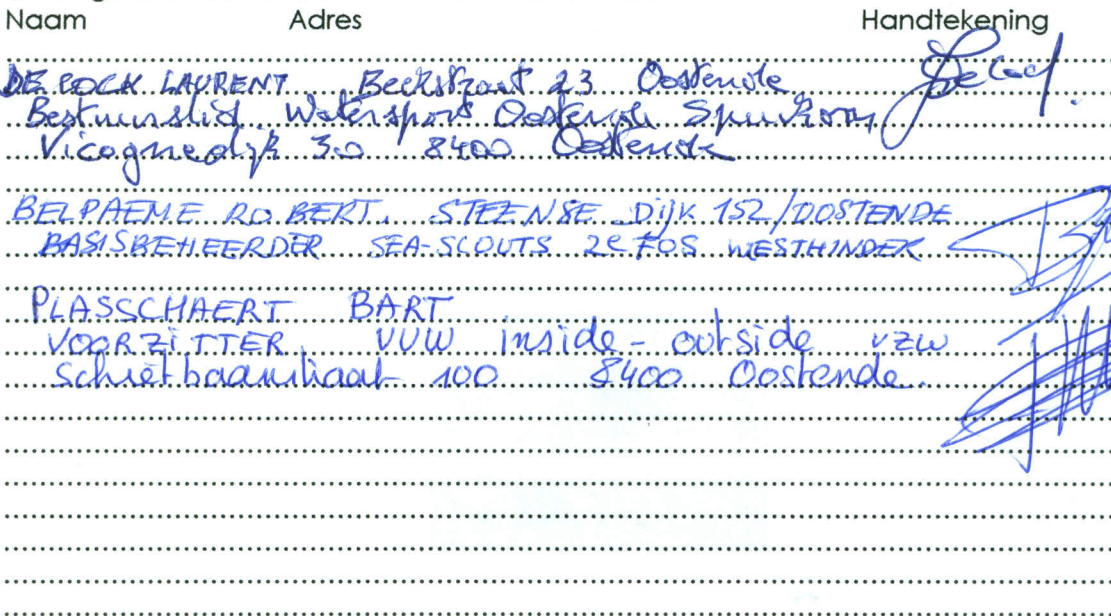 Naam Adres Handtekening
DE BOCK LAURENT Beekstraat 23 Oostende
Bestuurslid Watersport Oostende Spuikom
Vicognedijk 30 8400 Oostende
BELPAEME ROBERT. STEENSE DIJK 152/OOSTENDE
BASISBEHEERDER SEA-SCOUTS 2e FOS WESTHINDER
PLASSCHAERT BART
VOORZITTER VUW inside-outside vzw
Schietbaanstraat 100 8400 Oostende.